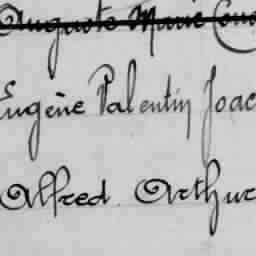 Auguste Marie
Eugène Valentin Joac
Alfred Arthur